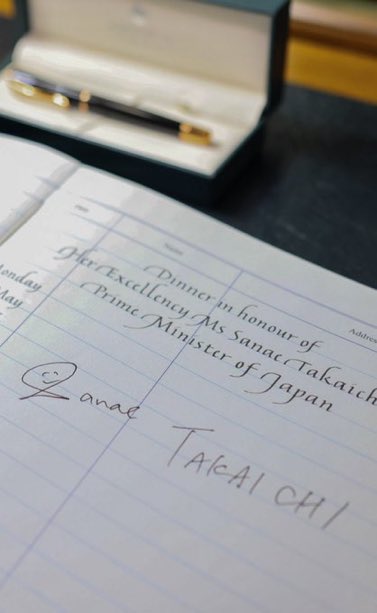 Name
Address
Monday
May
Dinner in honour of
Her Excellency Ms Sanae Takaich
Prime Minister of Japan
Sanae TAKAICHI